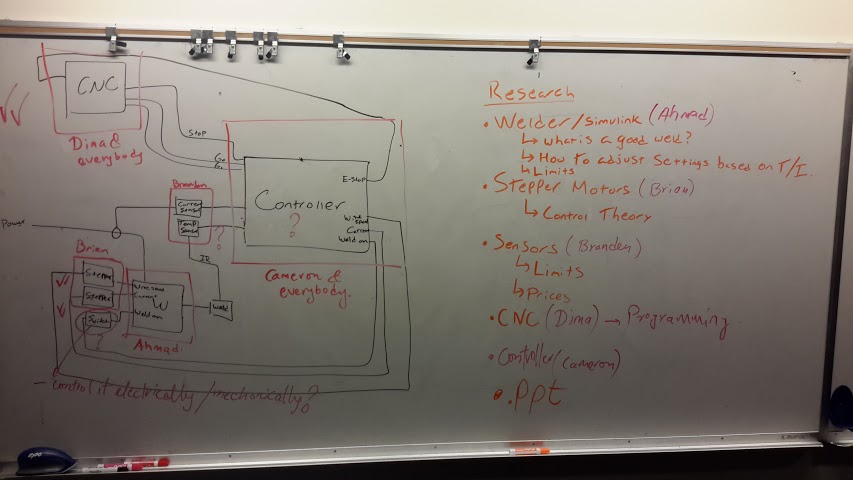 CNC
Dima &
everybody
Stop
Controller
?
E-Stop
Wire
Speed
Current
Weld on
Cameron &
everybody.
Brandon
Current
Sensor
Temp
Sensor
?
IR
Power
Brian
Stepper
Stepper
Switch
?
Wire Speed
Current
Weld on
W
Weld
Ahmad
- control it electrically/mechanically?
Research
• Welder/Simulink (Ahmad)
↳ What is a good weld?
↳ How to adjust Settings based on T/I.
↳ Limits
• Stepper Motors (Brian)
↳ Control Theory
• Sensors (Branden)
↳ Limits
↳ Prices
• CNC (Dima) → Programming
• Controller (Cameron)
• .ppt
expo